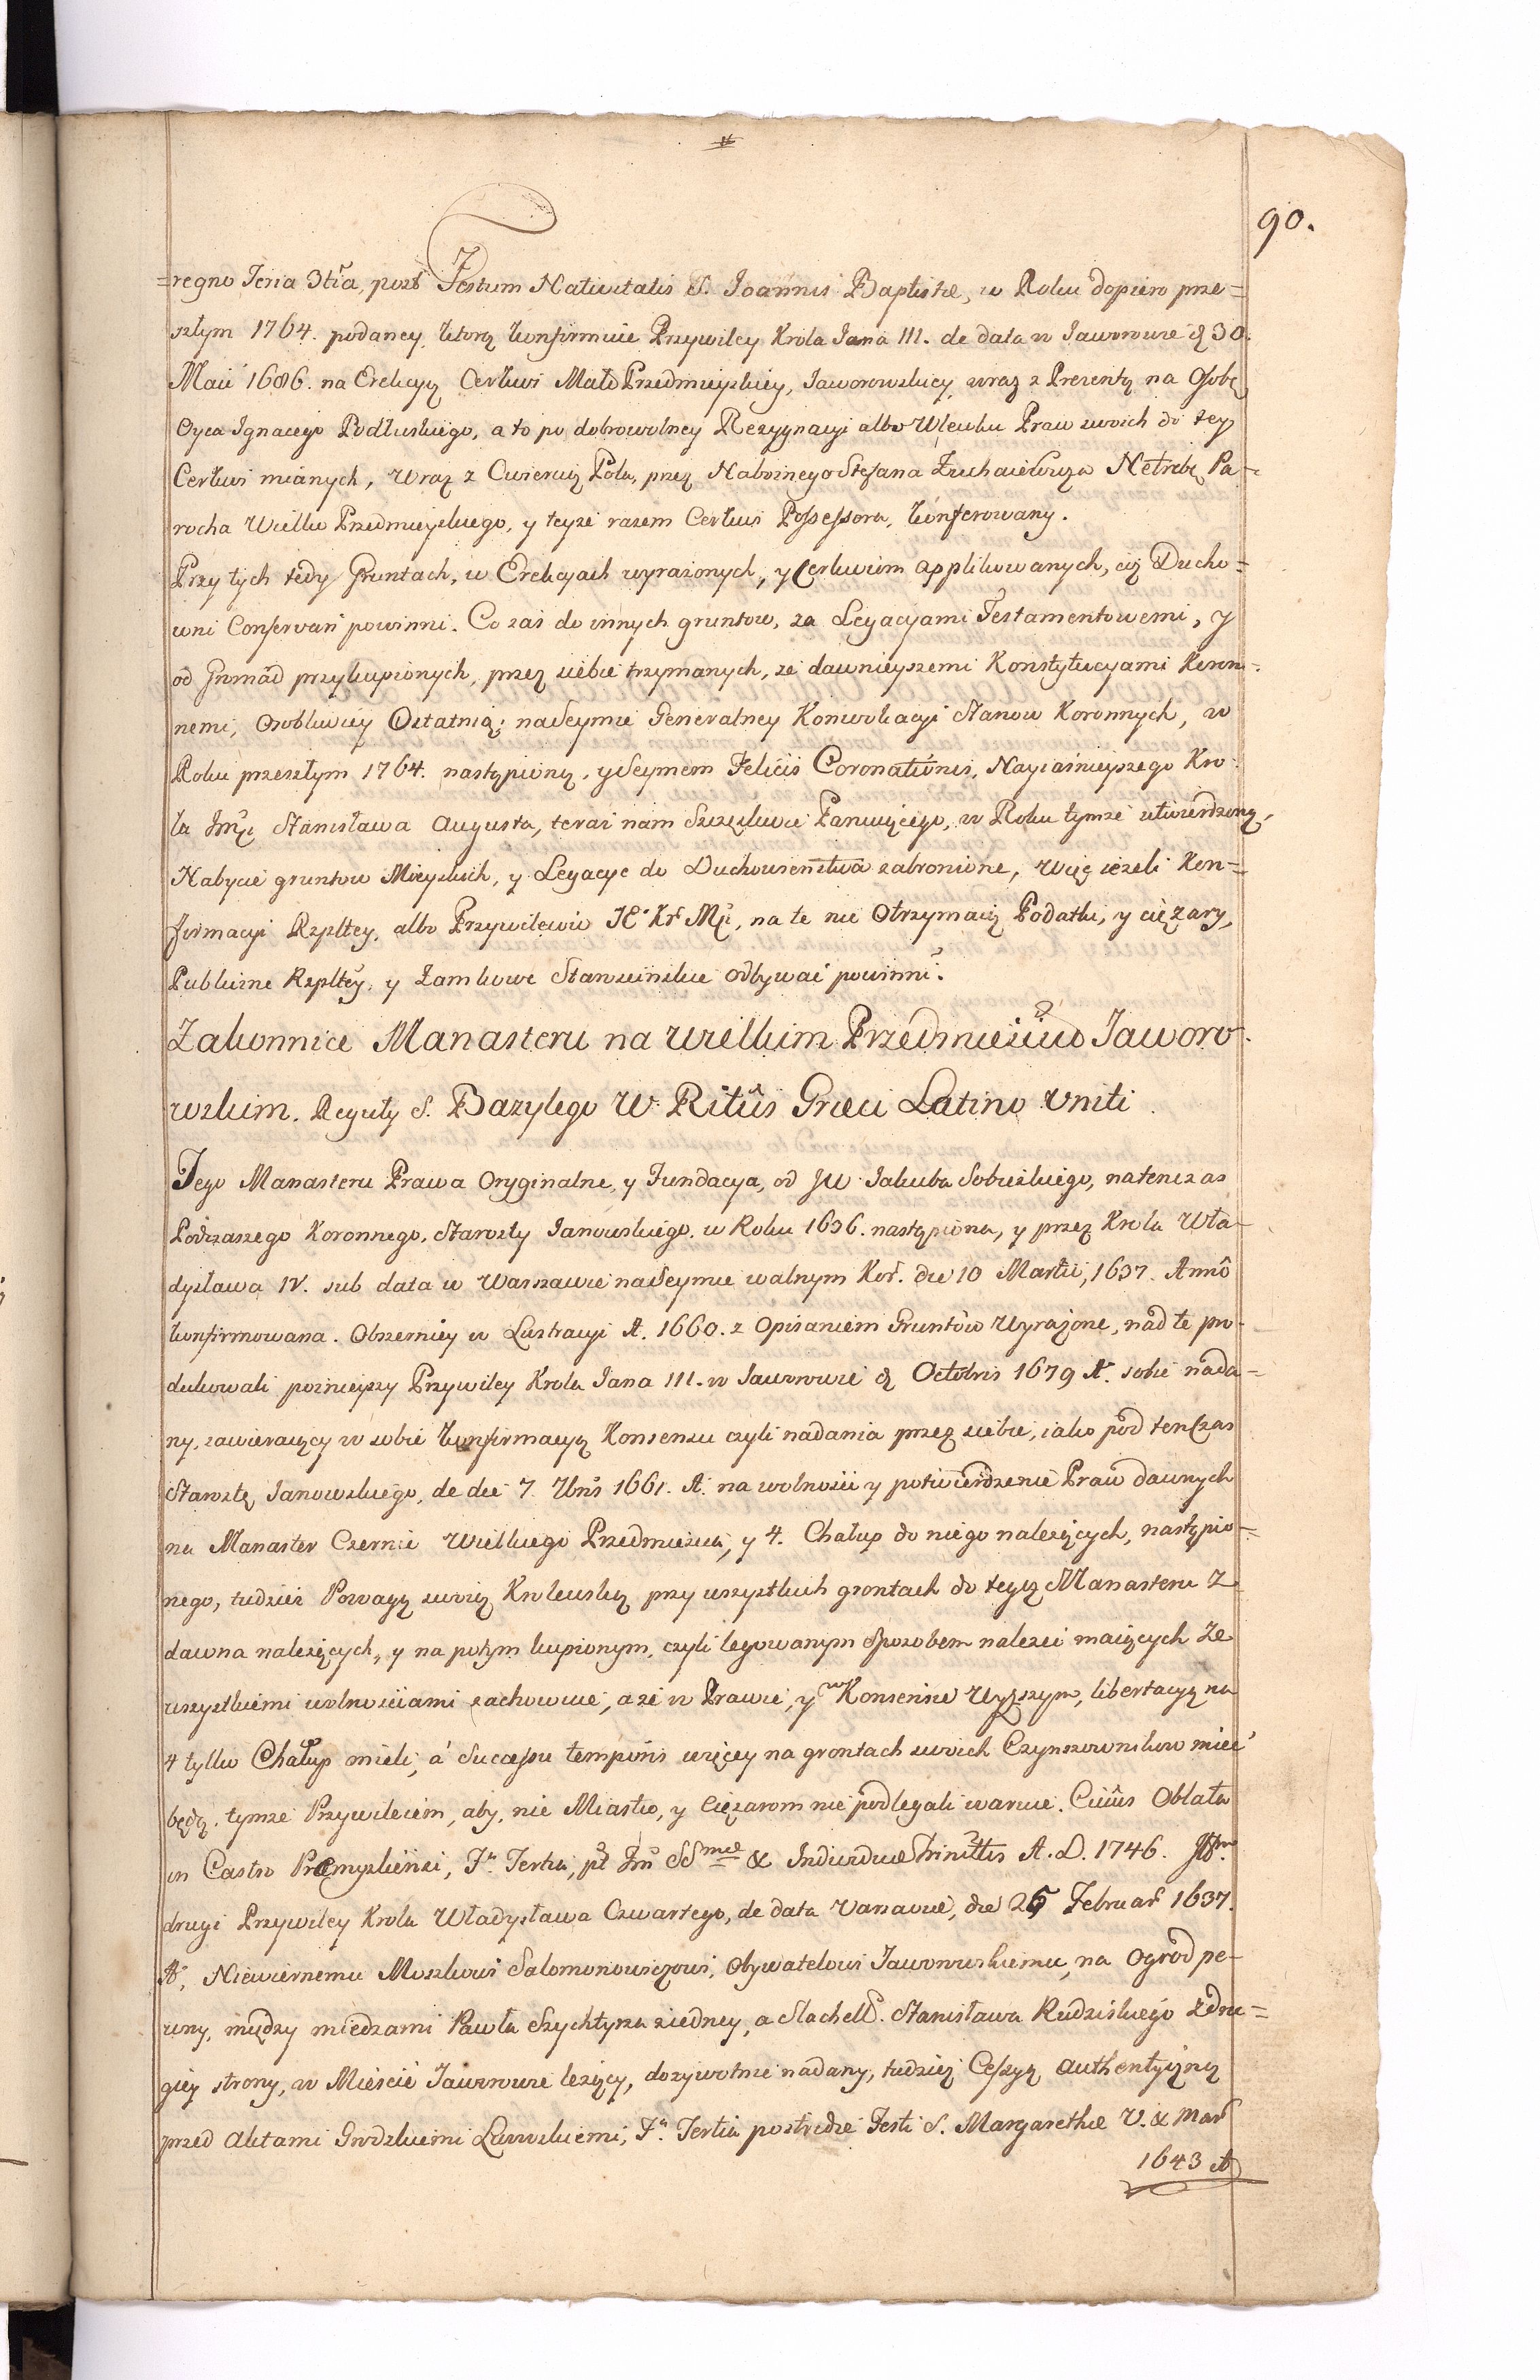 90.
=regno Feria 3tia, post Festum Nativitatis S. Joannis Baptistæ, w Roku dopiero prze=
szłym 1764. podaney, ktorą konfirmuie Przywiley Krola Jana III. de data w Jaworowie d 30.
Maii 1686. na Erekcyą Cerkwi Mało Przedmieyskiey, Jaworowskiey, wraz z Prezentą na Osobę
Oyca Ignacego Podluskiego, a to po dobrowolney Rezygnacyi albo Wlewku Praw swoich do tey
Cerkwi mianych, wraz z Cwiercią Pola, przez Nabożnego Stefana Netrebę Pa=
rocha Wielko Przedmieyskiego, y teyże razem Cerkwi Possessora, konferowany.
Przy tych tedy Gruntach, w Erekcyach wyrażonych, y Cerkwiom applikowanych, ciż Ducho=
wni Conservari powinni. Co zaś do innych gruntow, za Legacyami Testamentowemi, y
od Gromad przykupionych, przez siebie trzymanych, że dawnieyszemi Konstytucyami Koron=
nemi, osobliwiey Ostatnią, na Seymie Generalney Konwokacyi Stanow Koronnych, w
Roku przeszłym 1764. nastąpioną, y Seymem Felicis Coronationis, Nayiaśnieyszego Kro=
la Jmci Stanisława Augusta, teraz nam Szczęśliwie Panuiącego, w Roku tymże utwierdzoną,
Nabycie gruntow Mieyskich, y Legacye do Duchowieństwa zabronione, więc ieżeli Kon=
firmacyi Rzpltey, albo Przywilewiu JE Kr Mci, na te nie Otrzymaią Podatki, y ciężary,
Publiczne Rzpltey, y Zamkowe Starościńskie odbywać powinni.
Zakonnice Manasteru na Wielkim Przedmieściu Jaworo=
wskim. Reguły S. Bazylego W Ritûs Græci Latino Uniti
Tego Manasteru Prawa Oryginalne, y Fundacya, od JW Jakuba Sobieskiego, natenczas
Podczaszego Koronnego, Starosty Janowskiego, w Roku 1636. nastąpiona, y przez Krola Wła=
dysława IV. sub data w Warszawie na Seymie walnym Kor. die 10 Martii, 1637. Anno
konfirmowana. Obszerniey w Lustracyi A. 1660. z Opisaniem Gruntow Wyrażone, nad te pro=
dukowali poznieyszy Przywiley Krola Jana III. w Jaworowie d Octobris 1679 A. sobie nada=
ny, zawieraiący w sobie konfirmacyą Konsensu czyli nadania przez siebie, iako pod ten Czas
Starostę Janowskiego, de die 7. 7bris 1661. A. na wolności y potwierdzenie Praw dawnych
na Manaster Czernic Wielkiego Przedmieścia, y 4. Chałup do niego należących, nastąpio=
nego, tudzież Powagą swoią Krolewską przy wszystkich grontach do tegoż Manasteru z
dawna należących, y na potym kupionym, czyli legowanym Sposobem należeć maiących ze
wszystkiemi wolnościami zachowuie, a że w Prawie, y w Konsensie Wyższym, libertacyą na
4 tylko Chałup mieli, a Successu temporis więcey na grontach swoich Czynszownikow mieć
będą, tymże Przywileiem, aby, nie Miastu, y Ciężarom nie podlegali waruie. Cuius Oblata
in Castro Præmysliensi, Fa. Tertia, pt Fm SSmæ & Individuæ Trinittis A. D. 1746.
drugi Przywiley Krola Władysława Czwartego, de data Varsaviæ, die 25 Februar 1637.
A, Niewiernemu Moszkowi Salomonowiczowi, Obywatelowi Jaworowskiemu, na Ogrod pe=
wny, między miedzami Pawła Szychtyra z iedney, a Slachett. Stanisława Rudziskiego z dru=
giey strony, w Mieście Jaworowie leżący, dożywotnie nadany, tudzież Cessyą authentyczną
przed Aktami Grodzkiemi Lwowskiemi, Fa. Tertia postridie Festi S. Margarethæ V. & Mar
1643 A